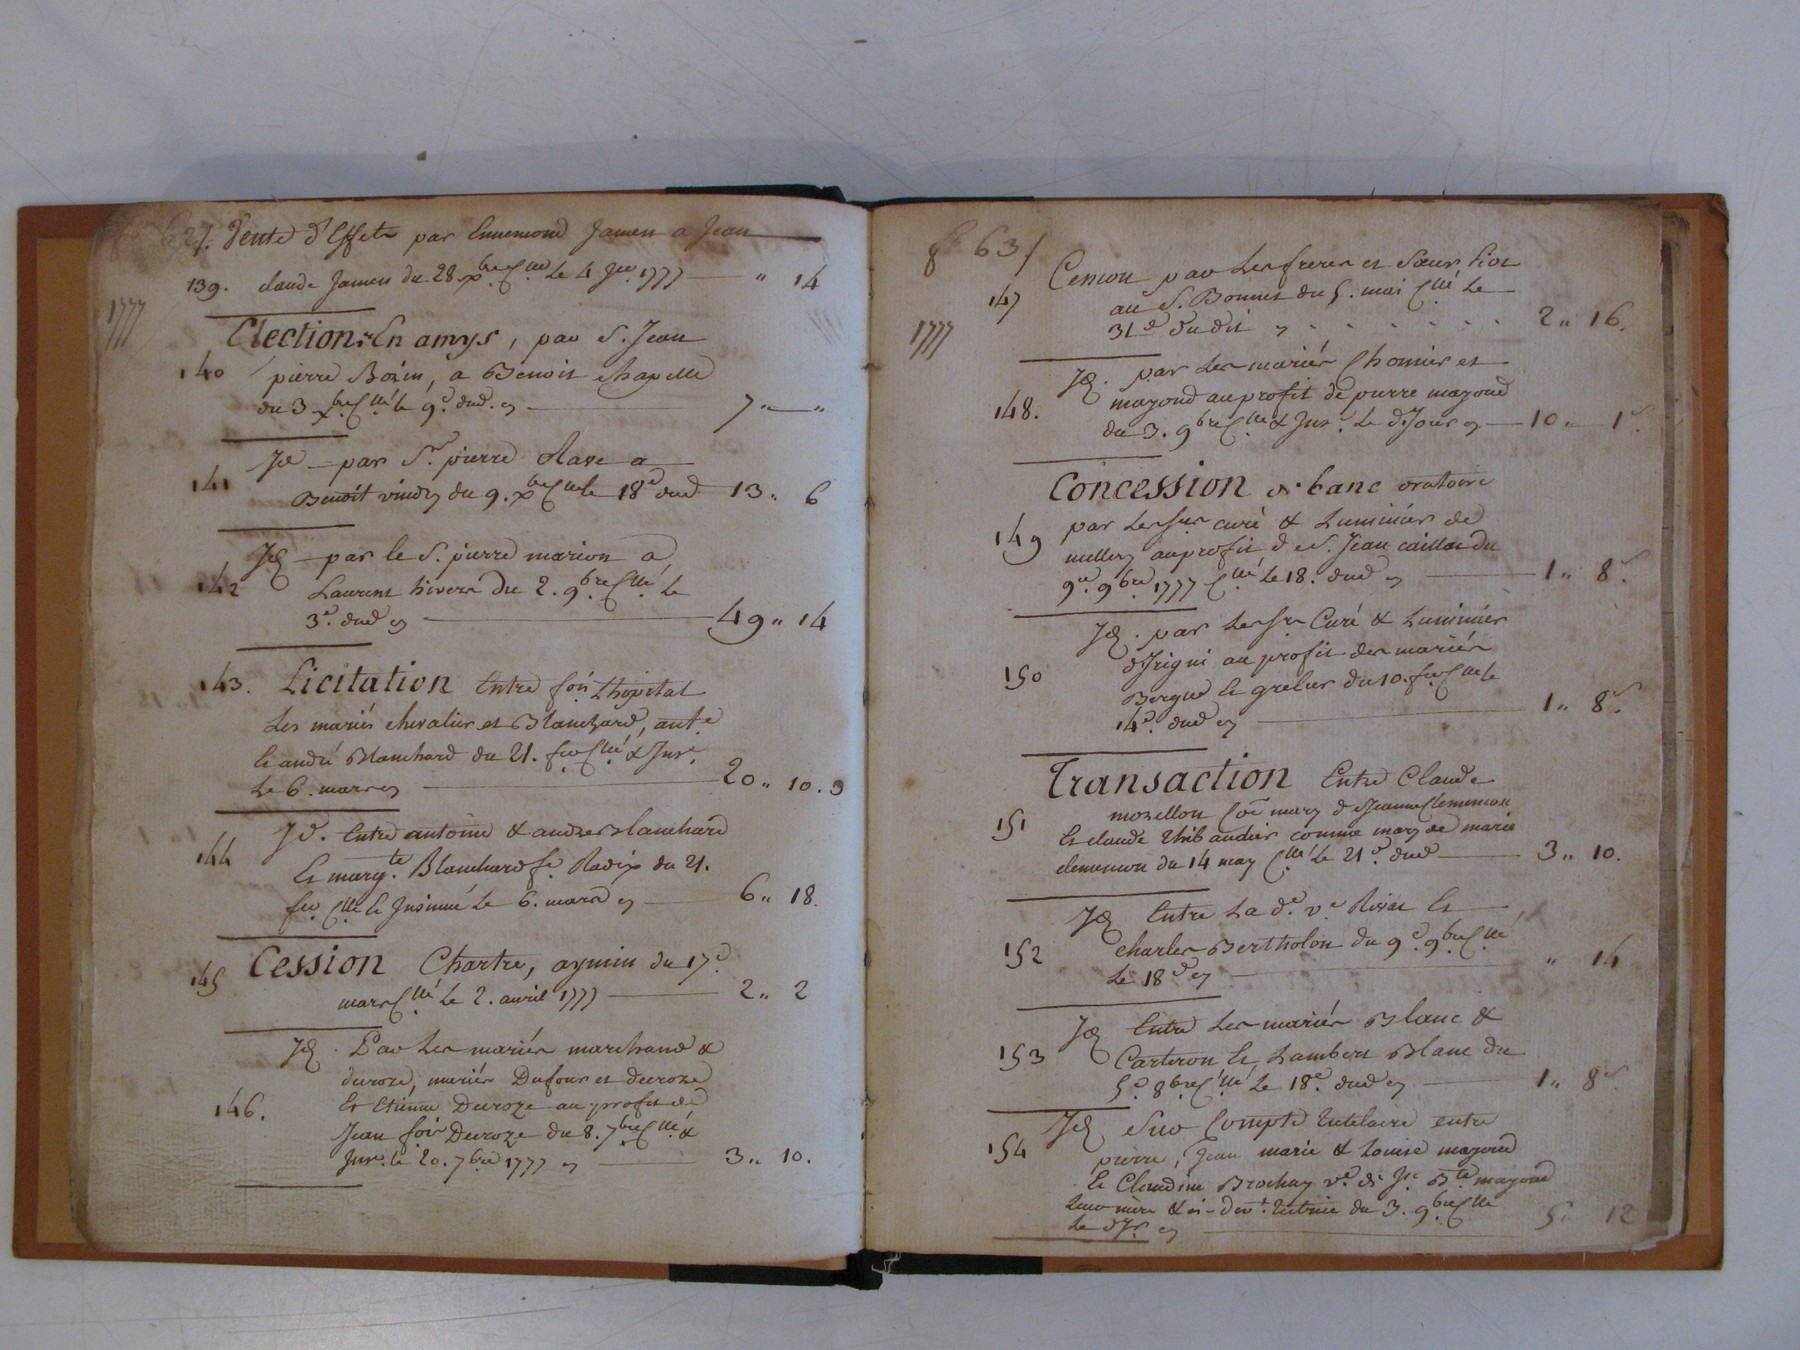 27. Vente d'Effets par Ennemond Jamen a Jean
139. claude Jamen du 28. xbre Clle le 4 Jer 1777 — " 14
1777
Election En amys, par S. Jean
140 pierre Bozin, a Benoit chapelle
du 3 xbre Cllé le 9e dud. — 7 " — "
Jd — par Sr pierre a
141 Benoit du 9. xbre Clle le 18e dud 13 " 6
Jd — par le S. pierre marion a
142 Laurent hivers du 2. 9bre Cllé le
3e dud — 49 " 14
143. Licitation Entre fois Lhopital
Les mariés chevalier et Blanchard, ante
Et andré Blanchard du 21. fev Cllé & Inse
Le 6. mars — 20 " 10. 9
144 Jd. Entre antoine & andre Blanchard
Et margte Blanchard fe Radix du 21.
fev Clle Et Insinué Le 6. mars — 6 " 18.
145 Cession Chartre, aymin du 17e
mars Cllé Le 2. avril 1777 — 2 " 2
Jd. Par Les mariés marchand &
deroze, mariés Dufour et deroze
146. Et Etienne Deroze au profit de
Jean fois Deroze du 8. 7bre Cllé &
Inse. le 20. 7bre 1777 — 3 " 10.
fo 63
Cession par Les freres et Soeur
147 au S. Bonnet du 5. mai Cllé Le
31e dudit — 2 " 16.
1777
Jd. par Les mariés Chomier et
148. mazond au profit de pierre mazond
du 3. 9bre Clle & Inse. Le d. Jour — 10 " 1
Concession de banc oratoire
149 par Les Srs curé & Luminier de
millery au profit de S. Jean caillot du
9e. 9bre 1777 Cllé Le 18. dud — 1 " 8
Jd. par Les Srs Curé & Luminier
150 d'Irigni au profit des mariés
Bergue Et grelier du 10. fev Clle le
14e dud — 1 " 8
Transaction Entre Claude
151 mozellon Coe mary de Jeanne Clemenson
Et claude thibaudier comme mary de marie
clemenson du 14 may Cllé Le 21e dud — 3 " 10.
Jd Entre La de. ve Et
152 charles Bertholon du 9e. 9bre Cllé
Le 18e — " 14
Jd Entre Les mariés Blanc &
153 Carteron Et Lambert Blanc du
5e 8bre Cllé Le 18e. dud — 1 " 8
Jd Sur Compte tutelaire entre
154 pierre, Jean marie & Louise mazond
Et Claudine Brochay ve. de Jn Bte mazond
Leur mere & ci-devt. tutrice du 3. 9bre Clle
Le d. Jr — 5 " 12